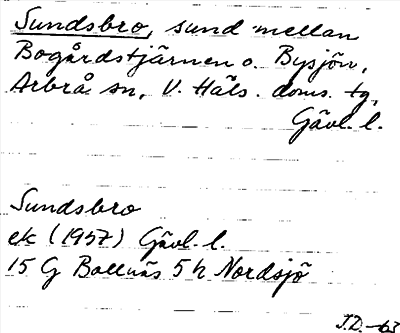 Sundsbro, sund mellan
Bogårdstjärnen o. Bysjön,
Arbrå sn, V. Häls. doms. tg,
Gävl. l.
Sundsbro
ek (1957) Gävl. l.
15 G Bollnäs 5 h Nordsjö
J.D. -63